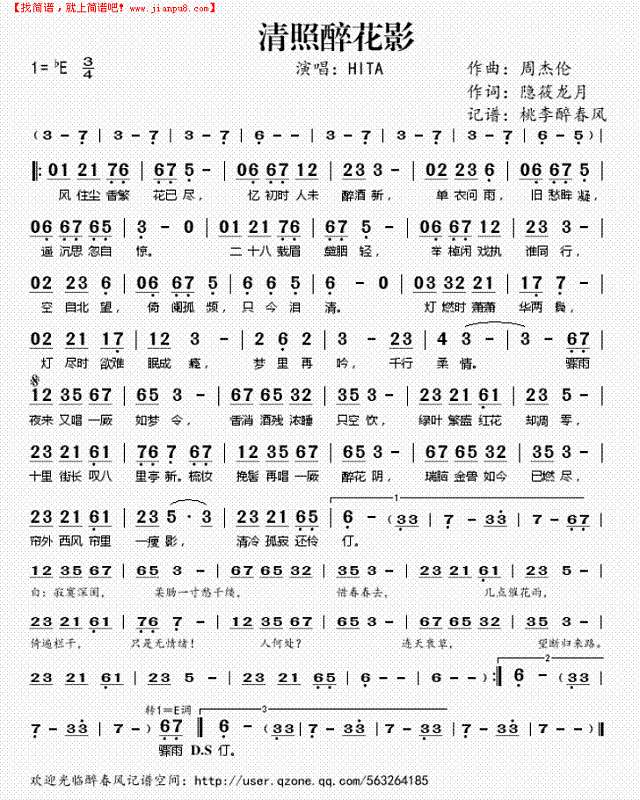 【找简谱，就上简谱吧! www.jianpu8.com】
清照醉花影
1=♭E 3/4 演唱：HITA 作曲：周杰伦
作词：隐筱龙月
记谱：桃李醉春风
(3 - 7 | 3 - 7 | 3 - 7 | 6 - - | 3 - 7 | 3 - 7 | 3 - 7 | 6 - 5)
01 21 76 | 67 5 - | 06 67 12 | 23 3 - | 02 23 6 | 06 67 1
风 住尘 香繁 花已 尽， 忆 初时 人未 醉酒 新， 单 衣问 雨， 旧 愁眸 凝，
06 67 65 | 3 - 0 | 01 21 76 | 67 5 - | 06 67 12 | 23 3 -
遥 沉思 忽自 惊。 二 十八 载眉 黛胭 轻， 举 棹闲 戏执 谁同 行，
02 23 6 | 06 67 5 | 6 6 5 | 6 - 0 | 03 32 21 | 17 7 -
空 自北 望， 倚 阑孤 频， 只 今 泪 清。 灯 燃时 萧萧 华两 鬓，
02 21 17 | 12 3 - | 2 6 2 | 3 - 23 | 4 3 - | 3 - 67
灯 尽时 欲难 眠成 瘾， 梦 里 再 吟， 千行 柔 情。 骤雨
12 35 67 | 65 3 - | 67 65 32 | 35 3 - | 23 21 61 | 23 5 -
夜来 又唱 一厥 如梦 令， 香消 酒残 浓睡 只空 饮， 绿叶 繁盛 红花 却凋 零，
23 21 61 | 76 7 67 | 12 35 67 | 65 3 - | 67 65 32 | 35 3 -
十里 街长 叹八 里亭 新。梳妆 挽髻 再唱 一厥 醉花 阴， 瑞脑 金兽 如今 已燃 尽，
1
23 21 61 | 23 5 · 3 | 23 21 65 | 6 - (33 | 7 - 33 | 7 - 67
帘外 西风 帘里 一瘦 影， 清冷 孤寂 还伶 仃。
12 35 67 | 65 3 - | 67 65 32 | 35 3 - | 23 21 61 | 23 5 -
白：寂寞深闺， 柔肠一寸愁千缕， 惜春春去， 几点催花雨，
23 21 61 | 67 7 - | 12 35 67 | 65 3 - | 67 65 32 | 35 3 -
倚遍栏干， 只是无情绪！ 人何处？ 连天衰草， 望断归来路。
2
23 21 61 | 23 5 - | 23 21 65 | 6 - - | 6 - - ) 6 - (33
转1=E调 3
7 - 33 | 7 - ) 67 6 - (33 | 7 - 33 | 7 - 33 | 7 - 33 | 7 - - )
骤雨 D.S 仃。
欢迎光临醉春风记谱空间：http://user.qzone.qq.com/563264185